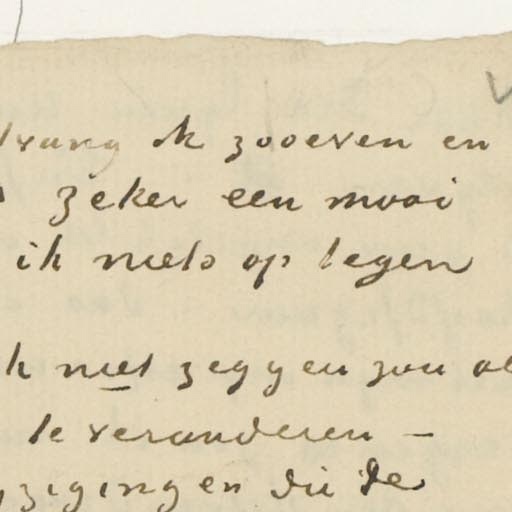 ik zooeven en
zeker een mooi
ik niets op tegen
niet zeggen zou
te veranderen —
die de